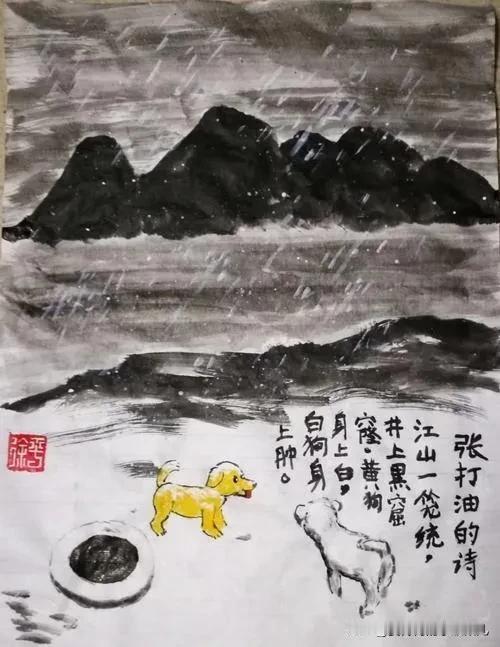 张打油的诗
江山一笼统，
井上黑窟
窿。黄狗
身上白，
白狗身
上肿。